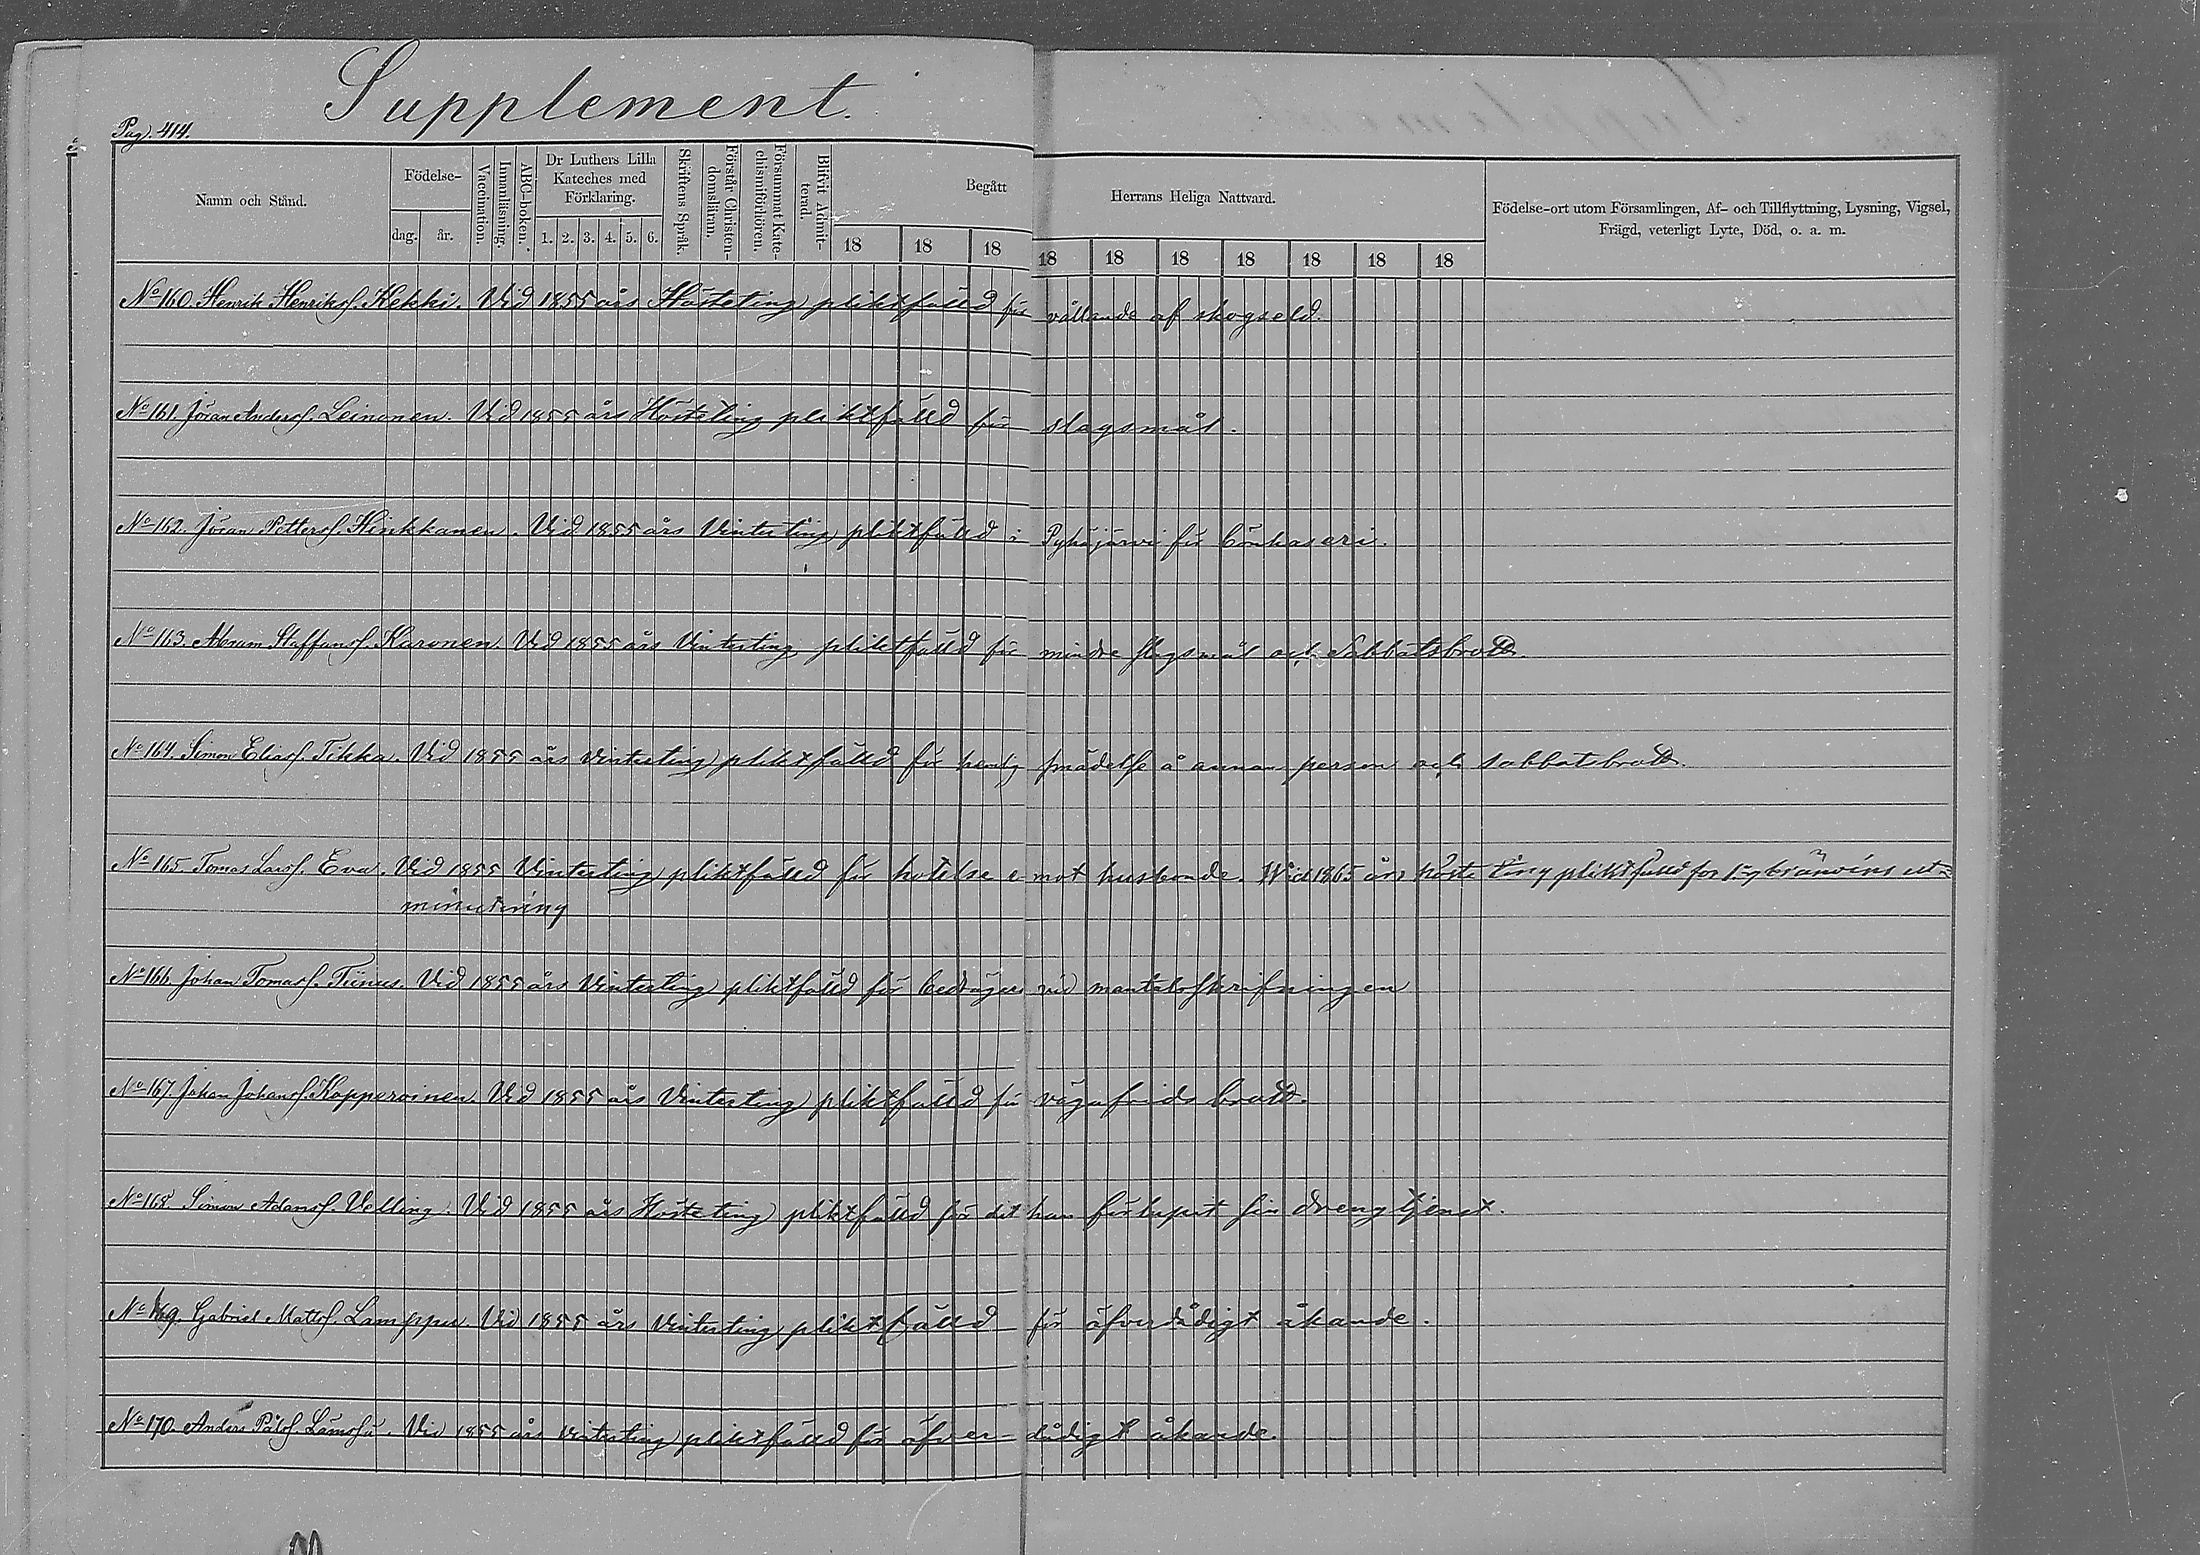 Supplement.
Pag. 414.
Namn och Stånd.
Födelse-
dag.
år.
Vaccination.
Innanläsning.
ABC-boken.
Dr Luthers Lilla
Kateches med
Förklaring.
1. 2. 3. 4. 5. 6.
Skriftens Språk.
Förstår Christen-
domslärin.
Försummat Kate-
chismiförhören.
Blifvit Admit-
terad.
Begått
Herrans Heliga Nattvard.
18 18 18 18 18 18 18 18 18 18
Födelse-ort utom Församlingen, Af- och Tillflyttning, Lysning, Vigsel,
Frägd, veterligt Lyte, Död, o. a. m.
No 160. Henrik Henrikss. Kekki. Vid 1855 års Hösteting pliktfälld för vållande af skogseld.
No 161. Jöran Anderss. Leinonen. Vid 1855 års Hösteting pliktfälld för slagsmål.
No 162. Jöran Petterss. Hirkkanen. Vid 1855 års Vinterting pliktfälld i Pyhäjärvi för bönhaseri.
No 163. Abram Staffanss. Karonen. Vid 1855 års Vinterting pliktfälld för mindre slagsmål och Sabbatsbrott.
No 164. Simon Eliass. Tikka. Vid 1855 års Vinterting pliktfälld för hemlig smädelse å annan person och sabbatsbrott.
No 165. Tomas Larss. Eva. Vid 1855 Vinterting pliktfälld för hotelse emot husbonde. Wid 1865 års höste ting pliktfälld for bränvins ut=
minutering
No 166. Johan Tomass. Tiinus. Vid 1855 års Vinterting pliktfälld för bedrägeri vid mantalsskrifningen
No 167. Johan Johanss. Kopperoinen. Vid 1855 års Vinterting pliktfälld för vägafrids brott.
No 168. Simon Adamss. Velling. Vid 1855 års Hösteting pliktfälld för det han förlupit sin drengtjenst.
No 169. Gabriel Mattss. Lamppu. Vid 1855 års Vinterting pliktfälld för öfverdådigt åkande.
No 170. Anders Pålss. Lämsä. Vid 1855 års Vinterting pliktfälld för öfver-dådigt åkande.